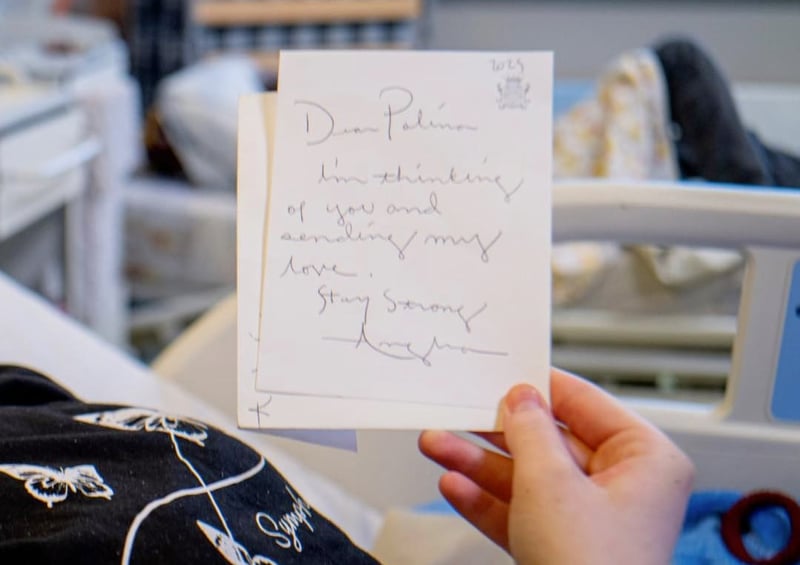 2025
Dear Polina
I'm thinking
of you and
sending my
love.
Stay Strong
K